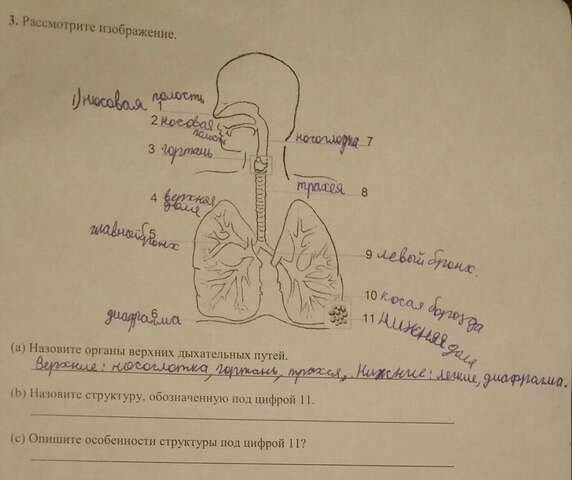 3. Рассмотрите изображение.
1) носовая полость
1
2 носовая
3 гортань
носоглотка 7
трахея 8
4 верхняя
доля
главный бронх 5
9 левый бронх.
10 косая борозда
диафрагма 6
11 нижняя
доля
(a) Назовите органы верхних дыхательных путей.
Верхние: носоглотка, гортань, трахея, Нижние: легкие, диафрагма.
(b) Назовите структуру, обозначенную под цифрой 11.
(c) Опишите особенности структуры под цифрой 11?